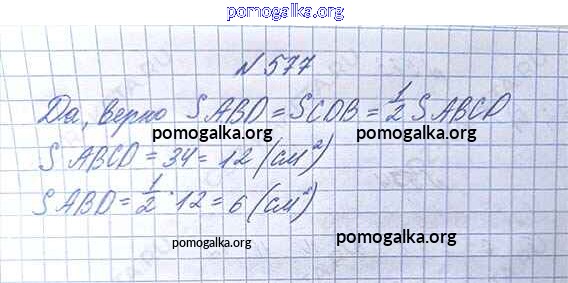 pomogalka.org
N 577
Да, верно SABD = SCDB = 1/2 SABCD
pomogalka.org pomogalka.org
SABCD = 34 = 12 (см²)
SABD = 1/2 · 12 = 6 (см²)
pomogalka.org pomogalka.org